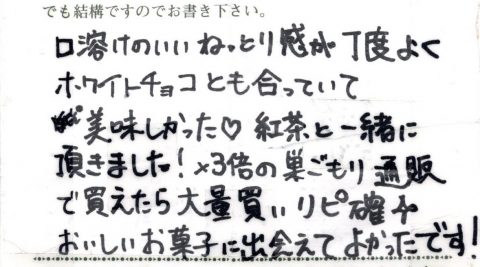 でも結構ですのでお書き下さい。
口溶けのいいねっとり感が丁度よく
ホワイトチョコとも合っていて
美味しかった♡ 紅茶と一緒に
頂きました！×3倍の巣ごもり通販
で買えたら大量買いリピ確
おいしいお菓子に出会えてよかったです！